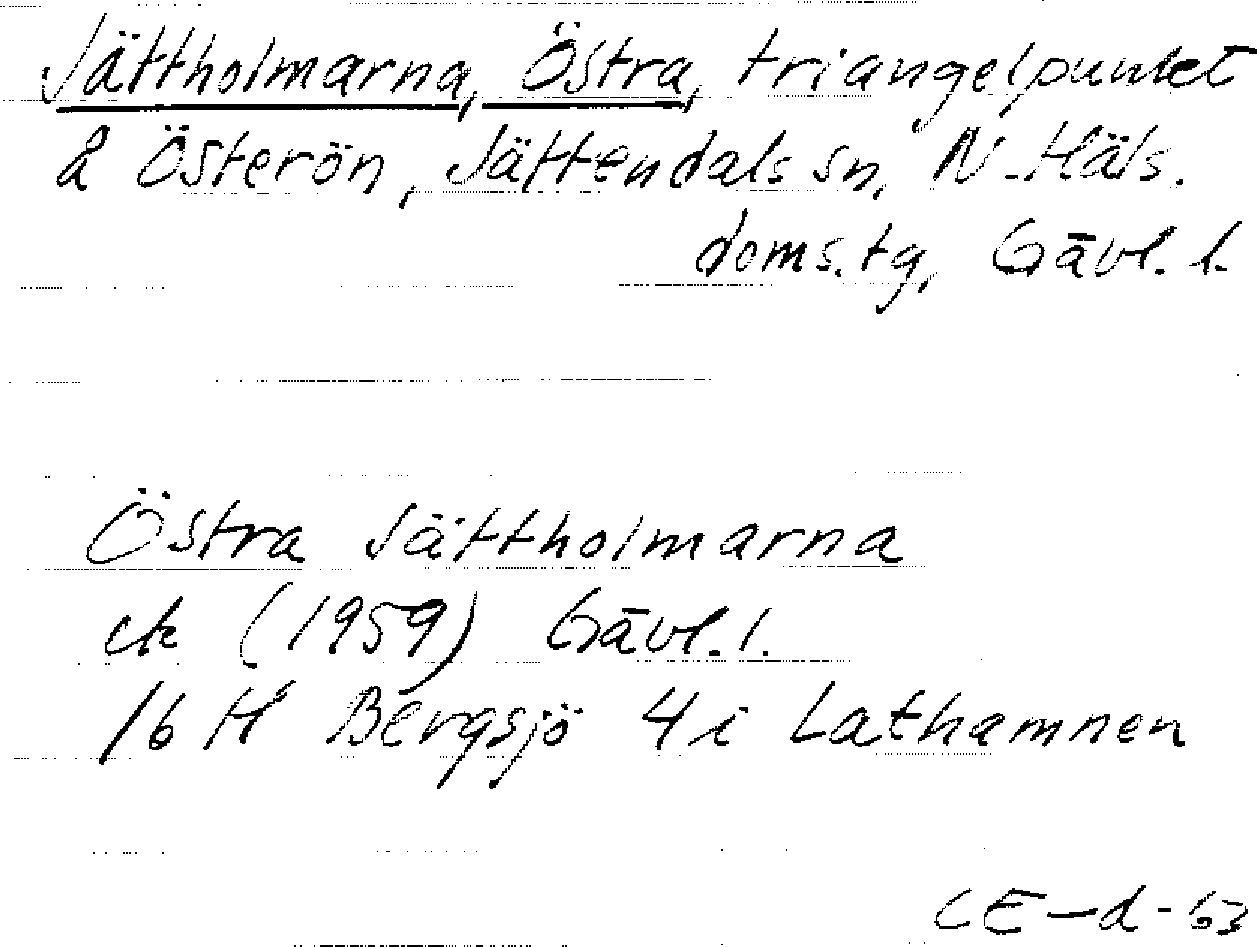 Jättholmarna, Östra, triangelpunkt
å Österön, Jättendals sn, N. Häls.
doms.tg, Gävl. l.
Östra Jättholmarna
ek (1959) Gävl. l.
16 H Bergsjö 4i Lathamnen
CE-d-63